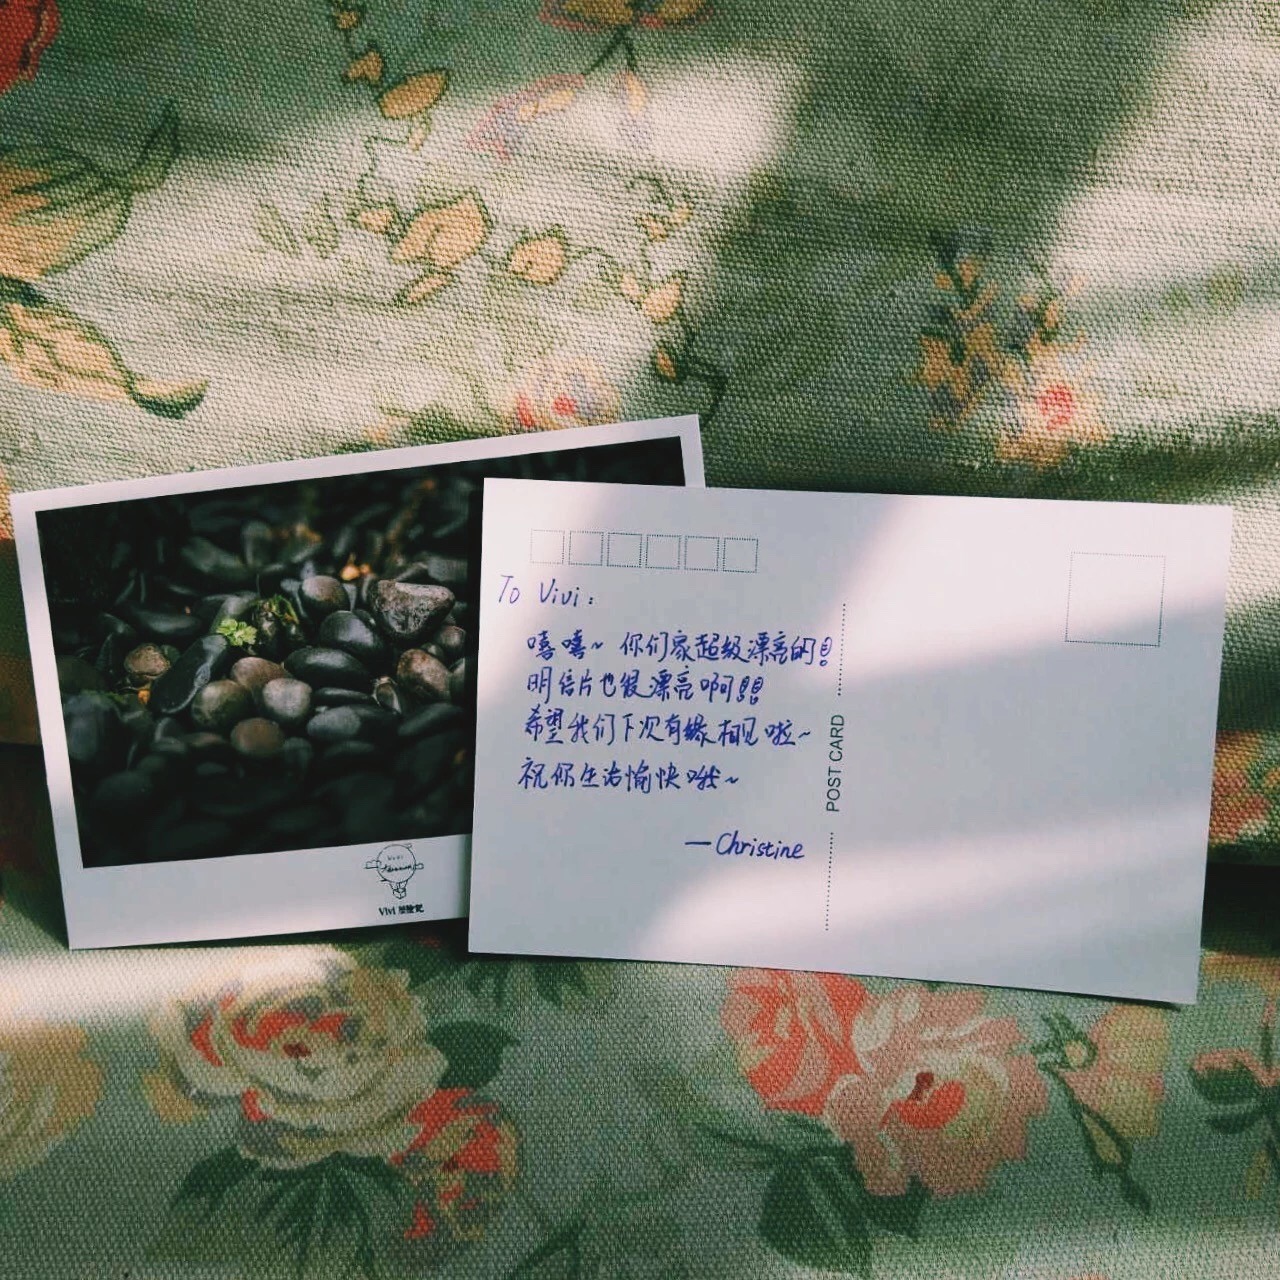 To Vivi:
嘻嘻~ 你们家超级漂亮的!
明信片也很漂亮啊!!
希望我们下次有缘相见啦~
祝你生活愉快哦~
—Christine
POST CARD
Vivi
Vivi 歷險記